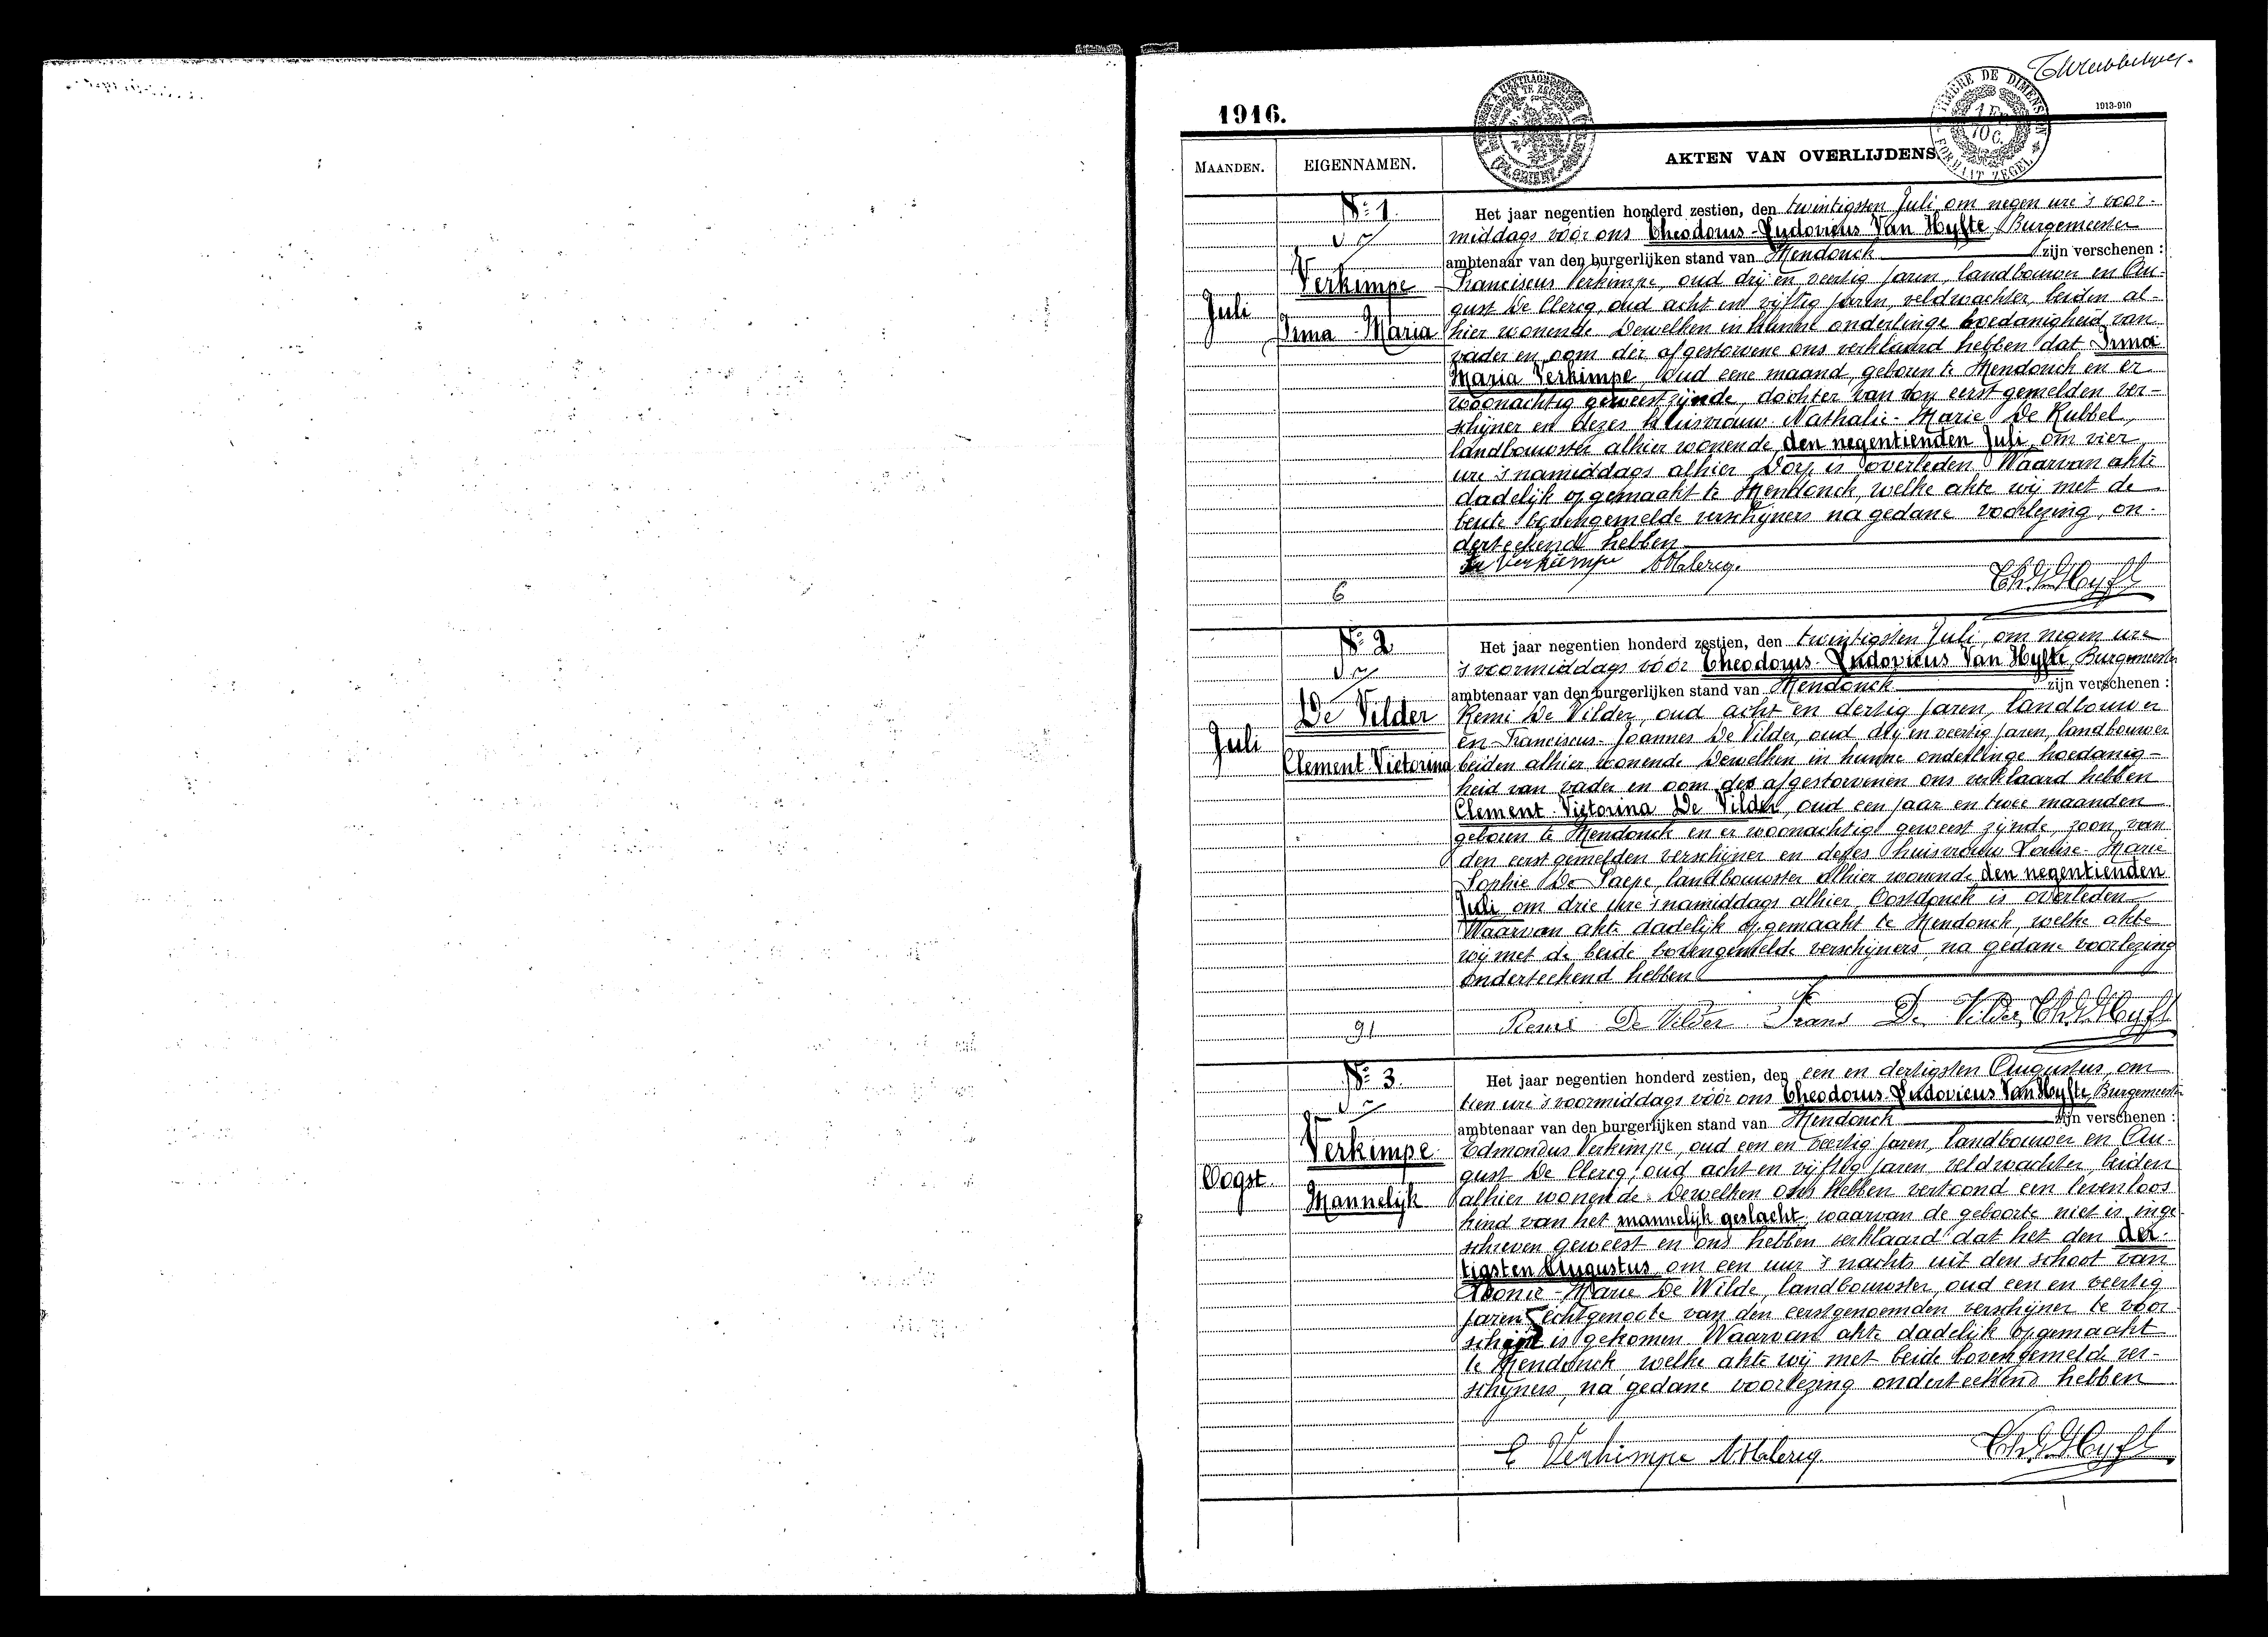 1916.
1913-910
TIMBRE DE DIMENSION
FORMAAT ZEGEL
MAANDEN. EIGENNAMEN. AKTEN VAN OVERLIJDENS
Nº 1.
Verkimpe
Juli
Irma-Maria
6
Het jaar negentien honderd zestien, den twintigsten Juli, om negen ure 's voor-
middags vóór ons Theodorus-Ludovicus Van Hyfte, Burgemeester
ambtenaar van den burgerlijken stand van Mendonck zijn verschenen :
Franciscus Verkimpe, oud drij en veertig jaren, landbouwer en Au-
gust De Clercq, oud acht en vijftig jaren, veldwachter, beiden al-
hier wonende. Dewelken in hunne onderlinge hoedanigheid van
vader en oom der afgestorvene ons verklaard hebben dat Irma
Maria Verkimpe, oud eene maand, geboren te Mendonck en er
woonachtig geweest zijnde, dochter van den eerstgemelden ver-
schijner en dezes huisvrouw Nathalie-Marie De Kubbel,
landbouwster alhier wonende, den negentienden Juli, om vier
ure 's namiddags alhier Dorp is overleden. Waarvan akte
dadelijk opgemaakt te Mendonck, welke akte wij met de
beide bovengemelde verschijners na gedane voorlezing, on-
derteekend hebben
Verkimpe A De Clercq. Th. V. Hyfte
Nº 2
De Vilder
Juli
Clement-Victorina
91
Het jaar negentien honderd zestien, den twintigsten Juli, om negen ure
's voormiddags vóór Theodorus-Ludovicus Van Hyfte, Burgemeester
ambtenaar van den burgerlijken stand van Mendonck zijn verschenen :
Remi De Vilder, oud acht en dertig jaren, landbouwer
en Franciscus-Joannes De Vilder, oud drij en veertig jaren, landbouwer
beiden alhier wonende. Dewelken in hunne onderlinge hoedanig-
heid van vader en oom des afgestorvenen ons verklaard hebben
Clement-Victorina De Vilder, oud een jaar en twee maanden
geboren te Mendonck en er woonachtig geweest zijnde, zoon van
den eerstgemelden verschijner en dezes huisvrouw Louise-Marie
Sophie De Paepe, landbouwster alhier wonende den negentienden
Juli, om drie ure 's namiddags alhier, Oostdonck is overleden
Waarvan akte dadelijk opgemaakt te Mendonck, welke akte
wij met de beide bovengemelde verschijners, na gedane voorlezing
onderteekend hebben
Remi De Vilder Frans De Vilder Th. V. Hyfte
Nº 3.
Verkimpe
Oogst.
Mannelijk
Het jaar negentien honderd zestien, den een en dertigsten Augustus, om
tien ure 's voormiddags vóór ons Theodorus-Ludovicus Van Hyfte, Burgemeester
ambtenaar van den burgerlijken stand van Mendonck zijn verschenen :
Edmondus Verkimpe, oud een en veertig jaren, landbouwer en Au-
gust De Clercq, oud acht en vijftig jaren veldwachter, beiden
alhier wonende. Dewelken ons hebben vertoond een levenloos
kind van het mannelijk geslacht, waarvan de geboorte niet is inge-
schreven geweest en ons hebben verklaard dat het den der-
tigsten Augustus, om een uur 's nachts uit den schoot van
Marie De Wilde, landbouwster, oud een en veertig
jaren, echtgenoote van den eerstgenoemden verschijner te voor-
schijn is gekomen. Waarvan akte dadelijk opgemaakt
te Mendonck welke akte wij met beide bovengemelde ver-
schijners, na gedane voorlezing onderteekend hebben
E Verkimpe A De Clercq Th. V. Hyfte